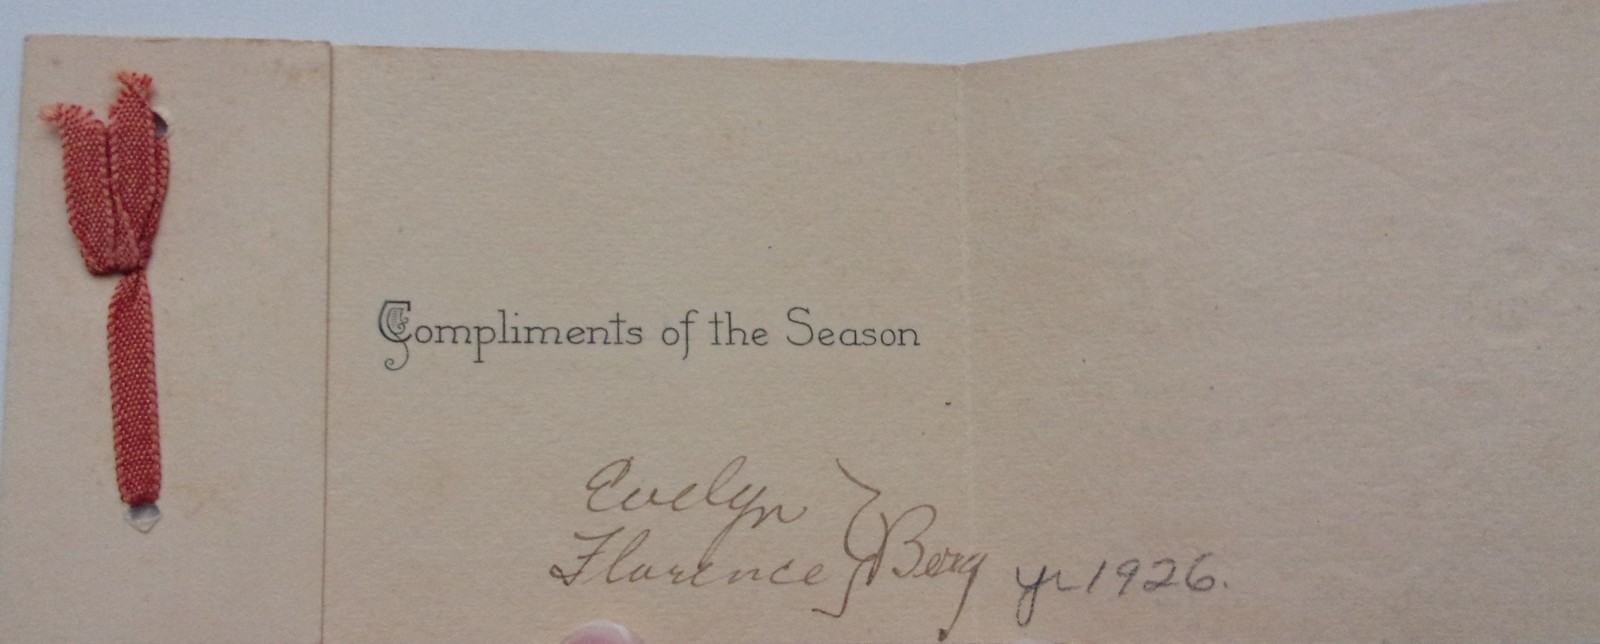 Compliments of the Season
Evelyn
Florence } Berg yr 1926.